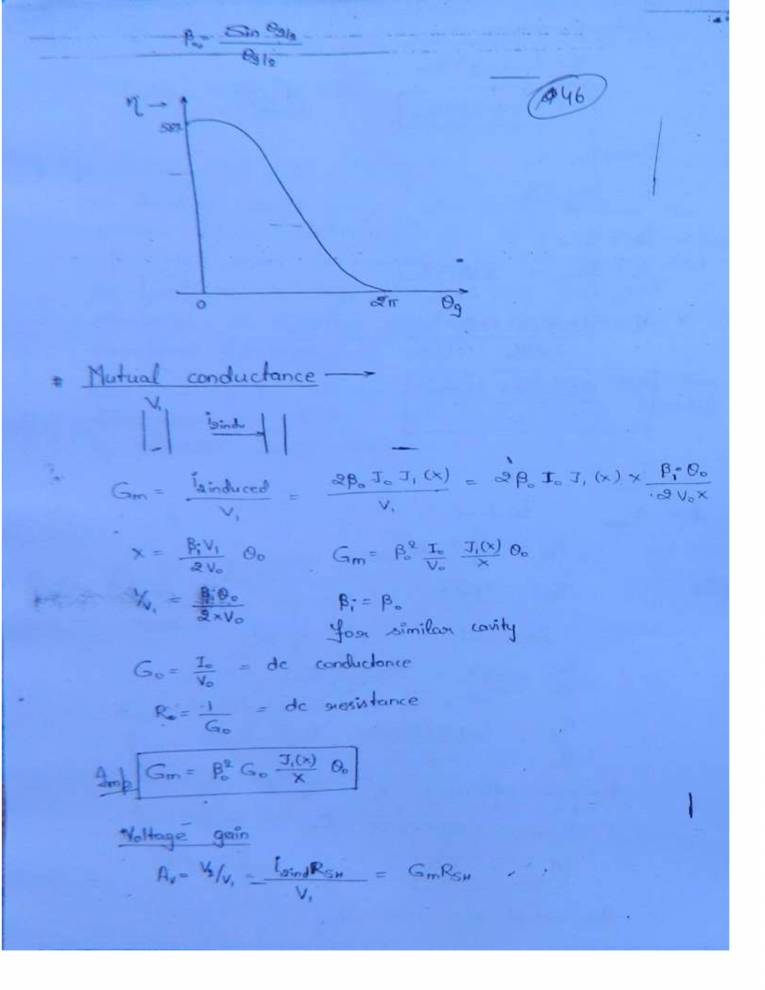 β₀ = Sin θg/2 / θg/2
46
η →
58%
0 2π θg
* Mutual conductance →
V₁
i₂ind
Gm = i₂induced / V₁ = 2β₀ I₀ J₁(x) / V₁ = 2β₀ I₀ J₁(x) × βi θ₀ / 2V₀x
x = βi V₁ / 2V₀ θ₀ Gm = β₀² I₀/V₀ J₁(x)/x θ₀
1/V₁ = βi θ₀ / 2xV₀ βi = β₀
for similar cavity
G₀ = I₀/V₀ = dc conductance
R₀ = 1/G₀ = dc resistance
Imp Gm = β₀² G₀ J₁(x)/x θ₀
Voltage gain
Av = V₂/V₁ = i₂ind RSH / V₁ = Gm RSH